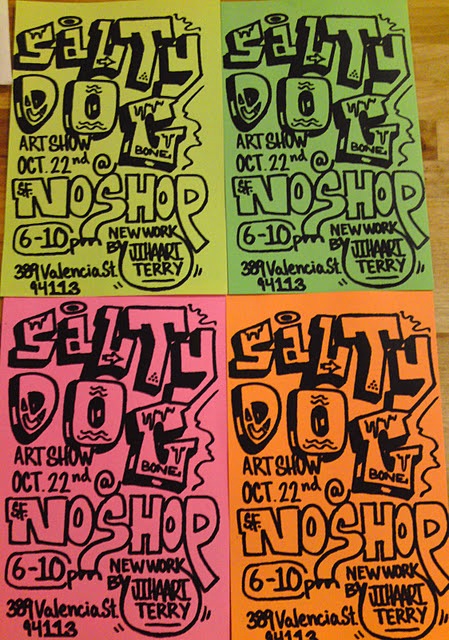 SaLTy
DOG
BONE.
ART SHOW
OCT. 22nd @
S.F. NOSHOP
6-10pm NEW WORK
BY JIHAARI
TERRY
389 Valencia St.
94113
SaLTy
DOG
BONE.
ART SHOW
OCT. 22nd @
S.F. NOSHOP
6-10pm NEW WORK
BY JIHAARI
TERRY
389 Valencia St.
94113
SaLTy
DOG
BONE.
ART SHOW
OCT. 22nd @
S.F. NOSHOP
6-10pm NEW WORK
BY JIHAARI
TERRY
389 Valencia St.
94113
SaLTy
DOG
BONE.
ART SHOW
OCT. 22nd @
S.F. NOSHOP
6-10pm NEW WORK
BY JIHAARI
TERRY
389 Valencia St.
94113